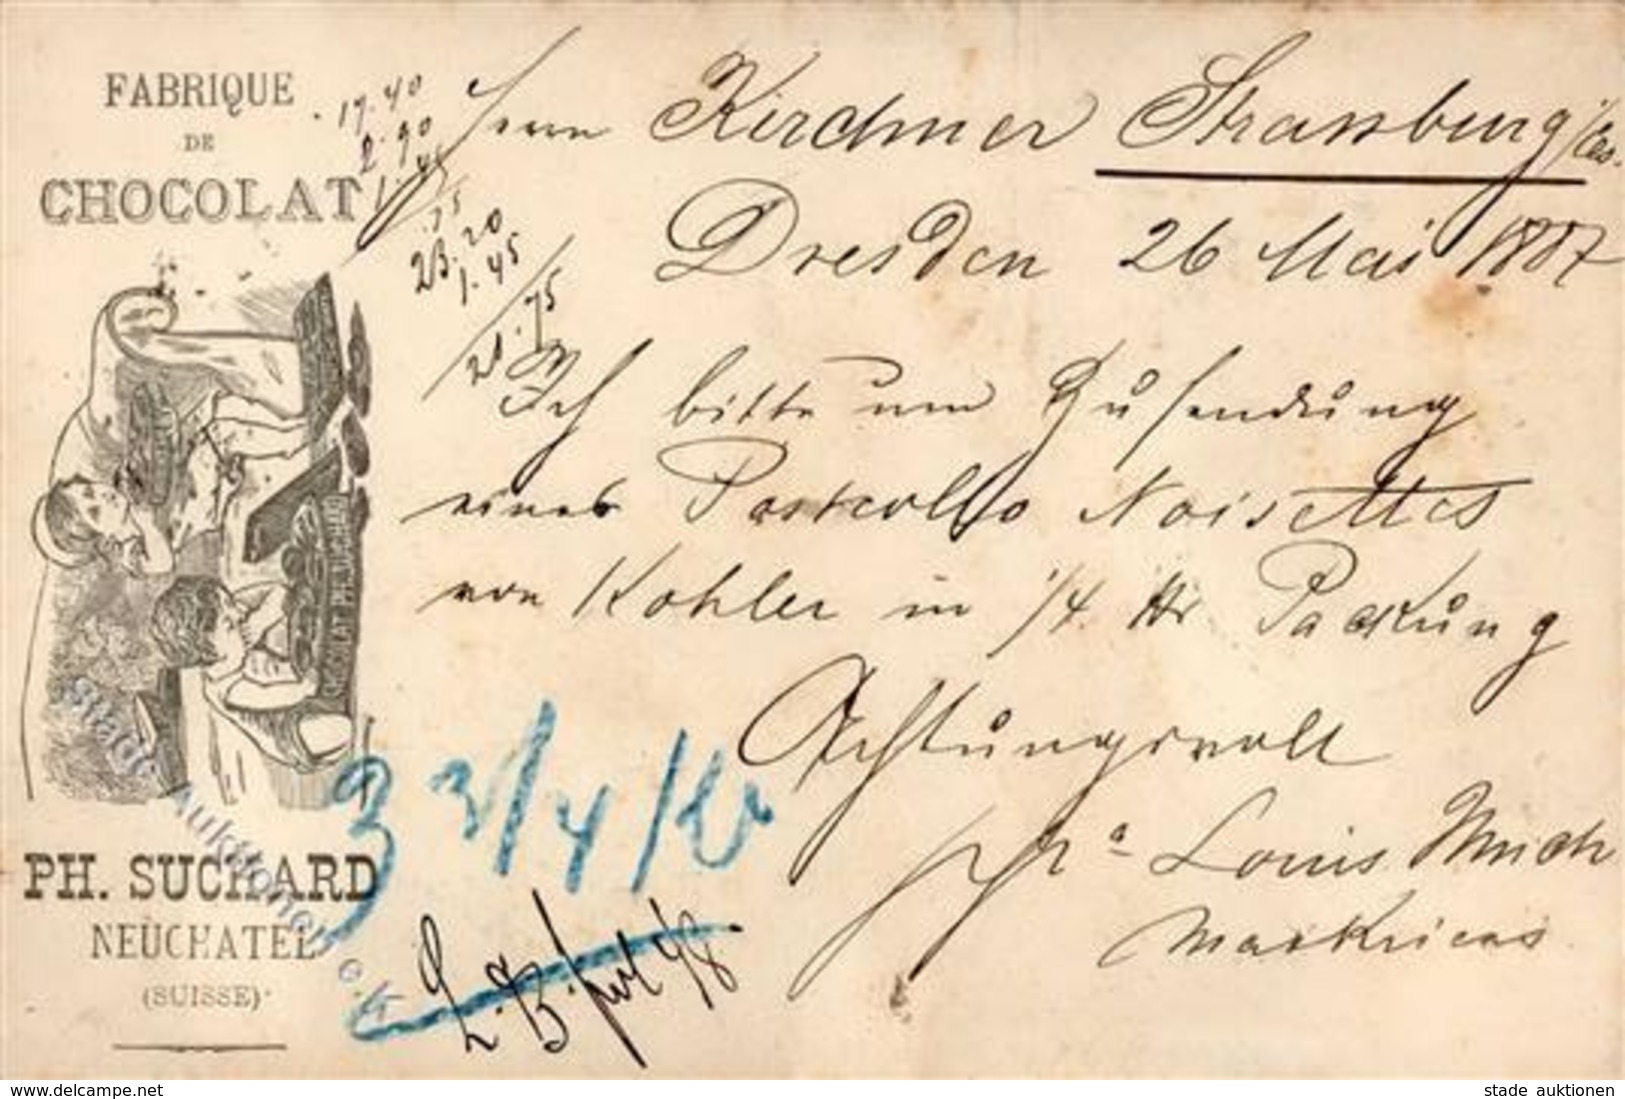 FABRIQUE
DE
CHOCOLAT
CHOCOLAT PH. SUCHARD
PH. SUCHARD
NEUCHATEL
(SUISSE)
17.40
2.90
23.20
1.45
21.75
Herrn Kirchner Strassburg i/Els.
Dresden 26 Mai 1887
Ich bitte um Zusendung
eines Postcollo Noisettes
von Kohler in 1/4 Packung
Achtungsvoll
ppa Louis
3 3/4
stade auktionen
www.delcampe.net
stade auktionen